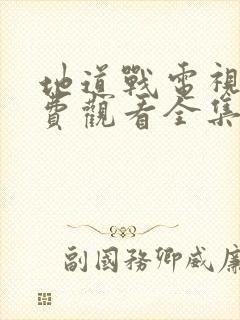 地道戰電視
費觀看全集
副國務卿威廉